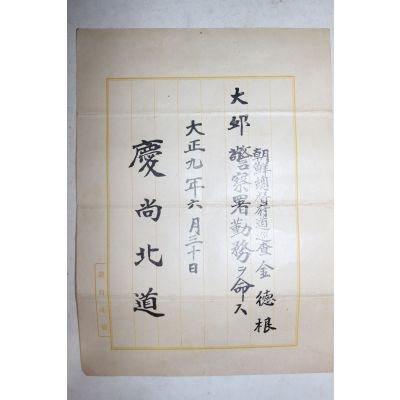 朝鮮總督府道巡査 金德根
大邱警察署勤務ヲ命ス
大正九年六月三十日
慶尚北道